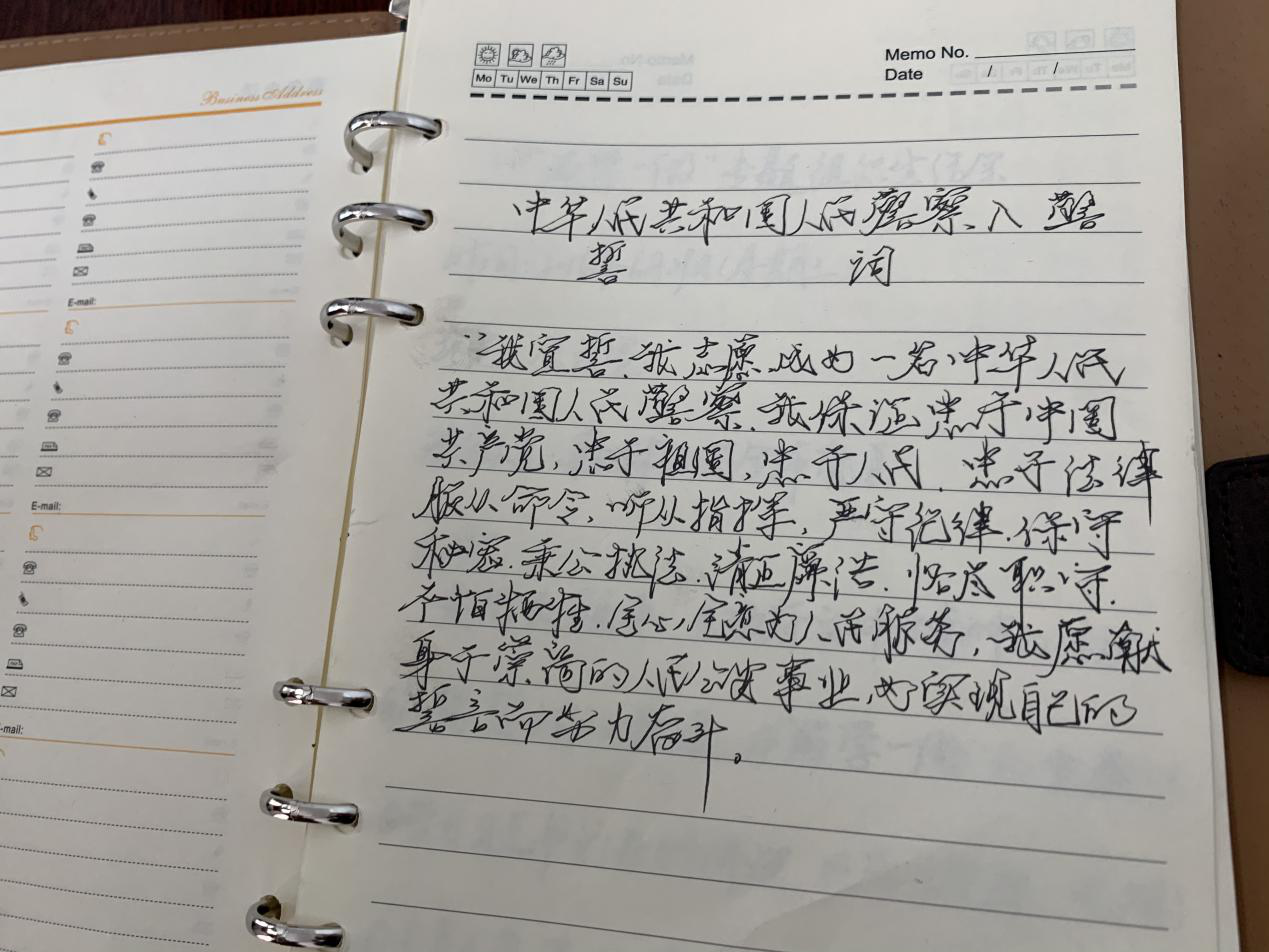 Business Address
E-mail:
E-mail:
-mail:
Memo No.
Date / /
Mo Tu We Th Fr Sa Su
中华人民共和国人民警察入警
誓 词
"我宣誓,我志愿成为一名中华人民
共和国人民警察,我保证忠于中国
共产党,忠于祖国,忠于人民,忠于法律
服从命令,听从指挥,严守纪律,保守
秘密,秉公执法,清正廉洁,恪尽职守,
不怕牺牲,全心全意为人民服务,我愿献
身于崇高的人民公安事业,为实现自己的
誓言而努力奋斗。